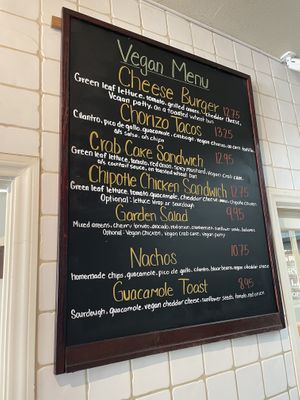 Vegan Menu
Cheese Burger 12.75
Green leaf lettuce, tomato, grilled onions, cheddar cheese,
Vegan patty, on a toasted wheat bun
Chorizo Tacos 13.75
Cilantro, pico de gallo, guacamole, cabbage, vegan chorizo, on corn tortilla
w/s salsa, w/s chips
Crab Cake Sandwich 12.95
Green leaf lettuce, tomato, red onion, spicy mustard, vegan crab cake,
w/s cocktail sauce, on toasted wheat
Chipotle Chicken Sandwich 12.75
Green leaf lettuce, tomato, guacamole, cheddar cheese, chipotle
Optional: lettuce wrap or sourdough
Garden Salad 9.95
Mixed greens, cherry tomato, avocado, red onion, cranberries, sunflower seeds, balsamic
Optional: Vegan Chicken, Vegan crab cake, vegan patty
Nachos 10.75
homemade chips, guacamole, pico de gallo, cilantro, black beans, vegan cheddar cheese
Guacamole Toast 8.95
Sourdough, guacamole, vegan cheddar cheese, sunflower seeds, tomato, red onion